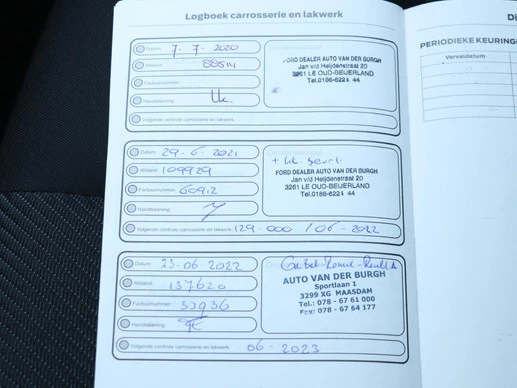 Logboek carrosserie en lakwerk
Datum: 7-7-2020
Afstand: 88514
Factuurnummer:
Handtekening:
Volgende controle carrosserie en lakwerk:
FORD DEALER AUTO VAN DER BURGH
Jan v/d Heijdenstraat 20
3261 LE OUD-BEIJERLAND
Tel.0186-6221 44
Datum: 29-6-2021
Afstand: 109929
Factuurnummer: 60912
Handtekening:
Volgende controle carrosserie en lakwerk: 129.000 / 06-2022
FORD DEALER AUTO VAN DER BURGH
Jan v/d Heijdenstraat 20
3261 LE OUD-BEIJERLAND
Tel.0186-6221 44
Datum: 23-06-2022
Afstand: 137620
Factuurnummer: 33936
Handtekening:
Volgende controle carrosserie en lakwerk: 06-2023
AUTO VAN DER BURGH
Sportlaan 1
3299 XG MAASDAM
Tel.: 078 - 67 61 000
Fax: 078 - 67 64 177
PERIODIEKE KEURING
Vervaldatum